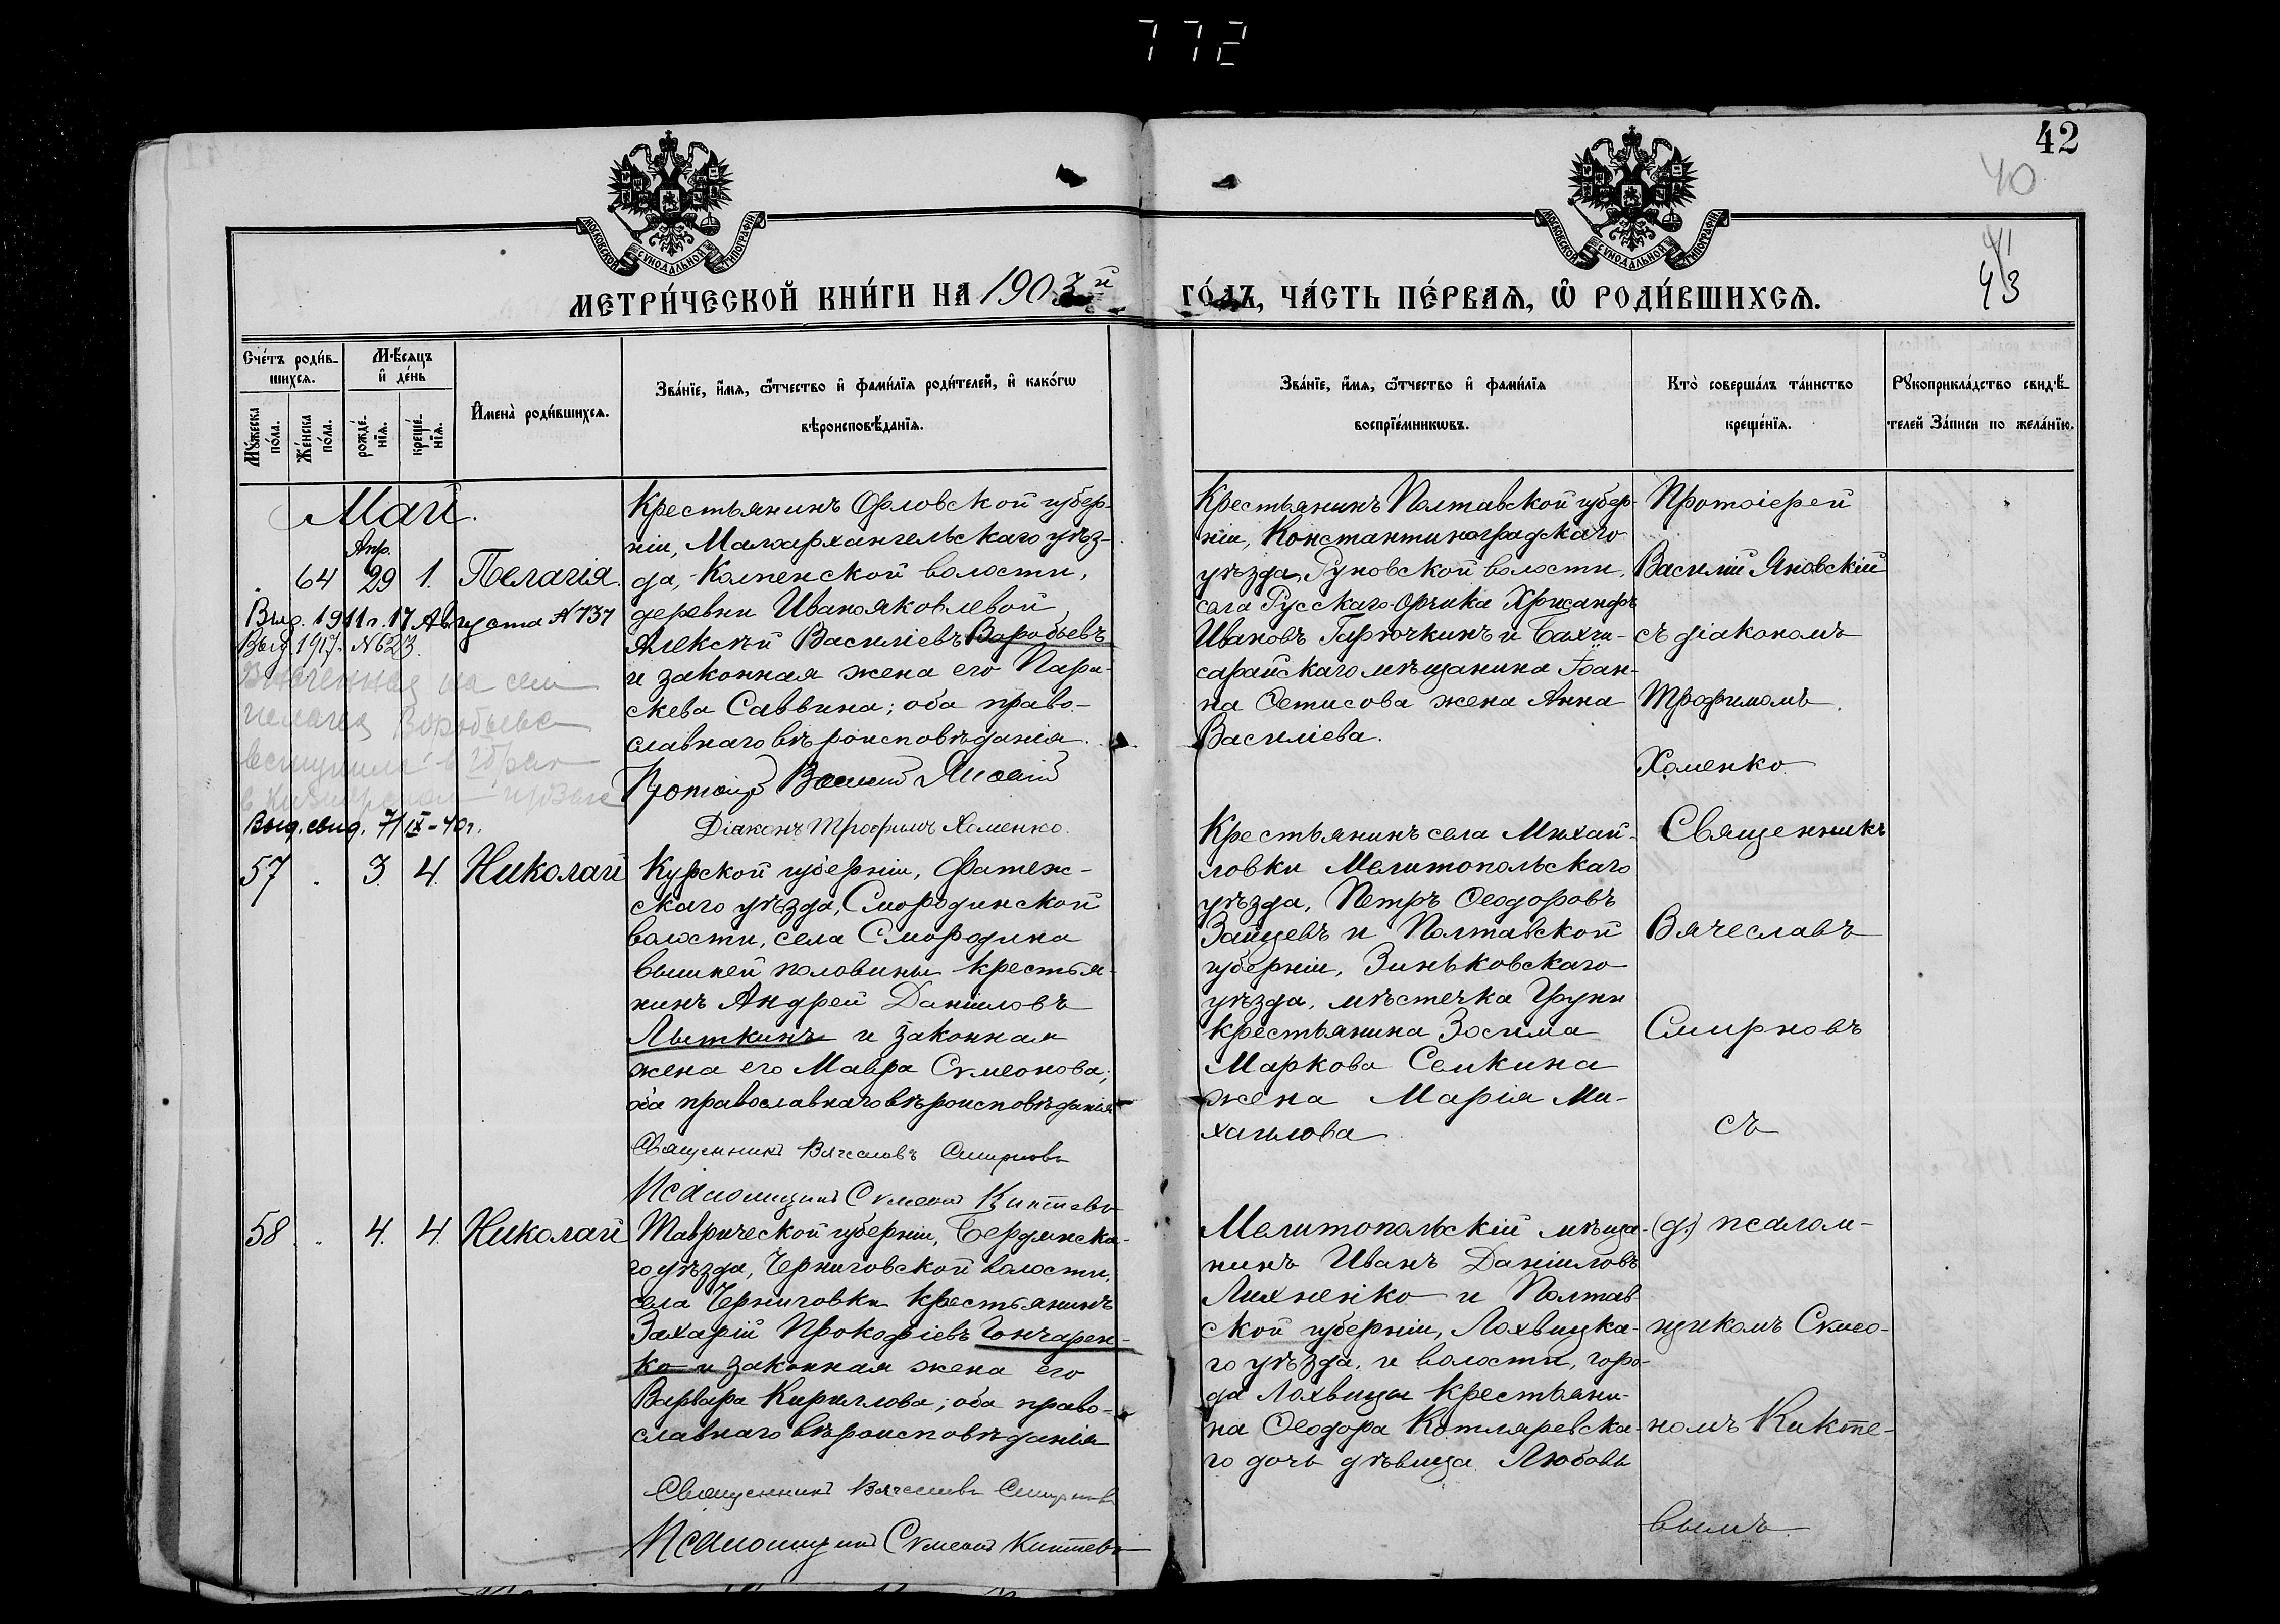 772
42
40
41
43
МОСКОВСКОЙ СУНОДАЛЬНОЙ ТИПОГРАФІИ
МОСКОВСКОЙ СУНОДАЛЬНОЙ ТИПОГРАФІИ
МЕТРИ́ЧЕСКОЙ КНИ́ГИ НА 1903й
ГО́ДЪ, ЧА́СТЬ ПЕ́РВАЯ, Ѡ РОДИ́ВШИХСѦ.
Сче́тъ роди́в-
шихсѧ.
Мꙋжеска по́ла.
Же́нска по́ла.
Мѣ́сѧцъ
и҆ де́нь
рожде́-
нїѧ.
креще́-
нїѧ.
И҆мена̀ роди́вшихсѧ.
Зва́нїе, и҆́мѧ, ѻ҆́тчество и҆ фами́лїѧ роди́телей, и҆ како́гѡ
вѣроисповѣ́данїѧ.
Зва́нїе, и҆́мѧ, ѻ҆́тчество и҆ фами́лїѧ
воспрїе́мникѡвъ.
Кто̀ соверша́лъ та́инство
креще́нїѧ.
Рꙋкоприкла́дство свидѣ́-
телей За́писи по жела́нїю.
Май.
Апр.
64 29 1. Пелагія.
Выд. 1911 г. 17 Августа №737
Выд. 1917. №623.
Пелагея Воробьева
вступила в брак
Выд. свид. 7/IX-40г.
Крестьянинъ Орловской губер-
ніи, Малоархангельскаго уѣз-
да, Колпенской волости,
деревни Иваяковлевой
Алексѣй Василіевъ Воробьевъ
и законная жена его Пара-
скева Саввина; оба право-
славнаго вѣроисповѣданія.
Протоіер Василій Яновскій
Діаконъ Трофимъ Хоменко.
Крестьянинъ Полтавской губер-
ніи, Константиноградскаго
уѣзда, Руновской волости,
села Русскаго-Орчика Хрисанфъ
Ивановъ Гирючкинъ и Бахчи-
сарайскаго мѣщанина Іоан-
на Ѳетисова жена Анна
Василіева.
Протоіерей
Василій Яновскій
съ діакономъ
Трофимомъ
Хоменко.
57 3. 4. Николай
Курской губерніи, Фатеж-
скаго уѣзда, Смородинской
волости, села Смородина
вышней половины крестья-
нинъ Андрей Даніиловъ
Лыткинъ и законная
жена его Мавра Сѵмеонова;
оба православнаго вѣроисповѣданія
Священникъ Вячеславъ Смирновъ
Псаломщикъ Сѵмеонъ Киктевъ
Крестьянинъ села Михай-
ловки Мелитопольскаго
уѣзда, Петръ Ѳеодоровъ
Зайцевъ и Полтавской
губерніи, Зиньковскаго
уѣзда, мѣстечка Груни
крестьянина Зосима
Маркова Семкина
жена Марія Ми-
хаилова.
Священникъ
Вячеславъ
Смирновъ
съ
58 4. 4. Николай
Таврической губерніи, Бердянска-
го уѣзда, Черниговской волости,
села Черниговки крестьянинъ
Захарій Прокофіевъ Гончарен-
ко и законная жена его
Варвара Кириллова; оба право-
славнаго вѣроисповѣданія
Священникъ Вячеславъ Смирновъ
Псаломщикъ Сѵмеонъ Киктевъ
Мелитопольскій мѣща-
нинъ Иванъ Даніиловъ
Лихненко и Полтав-
ской губерніи, Лохвицка-
го уѣзда, и волости, горо-
да Лохвицы крестьяни-
на Ѳеодора Котляревска-
го дочь дѣвица Любовь
(д.) псалом-
щикомъ Сѵмео-
номъ Киктe-
вымъ